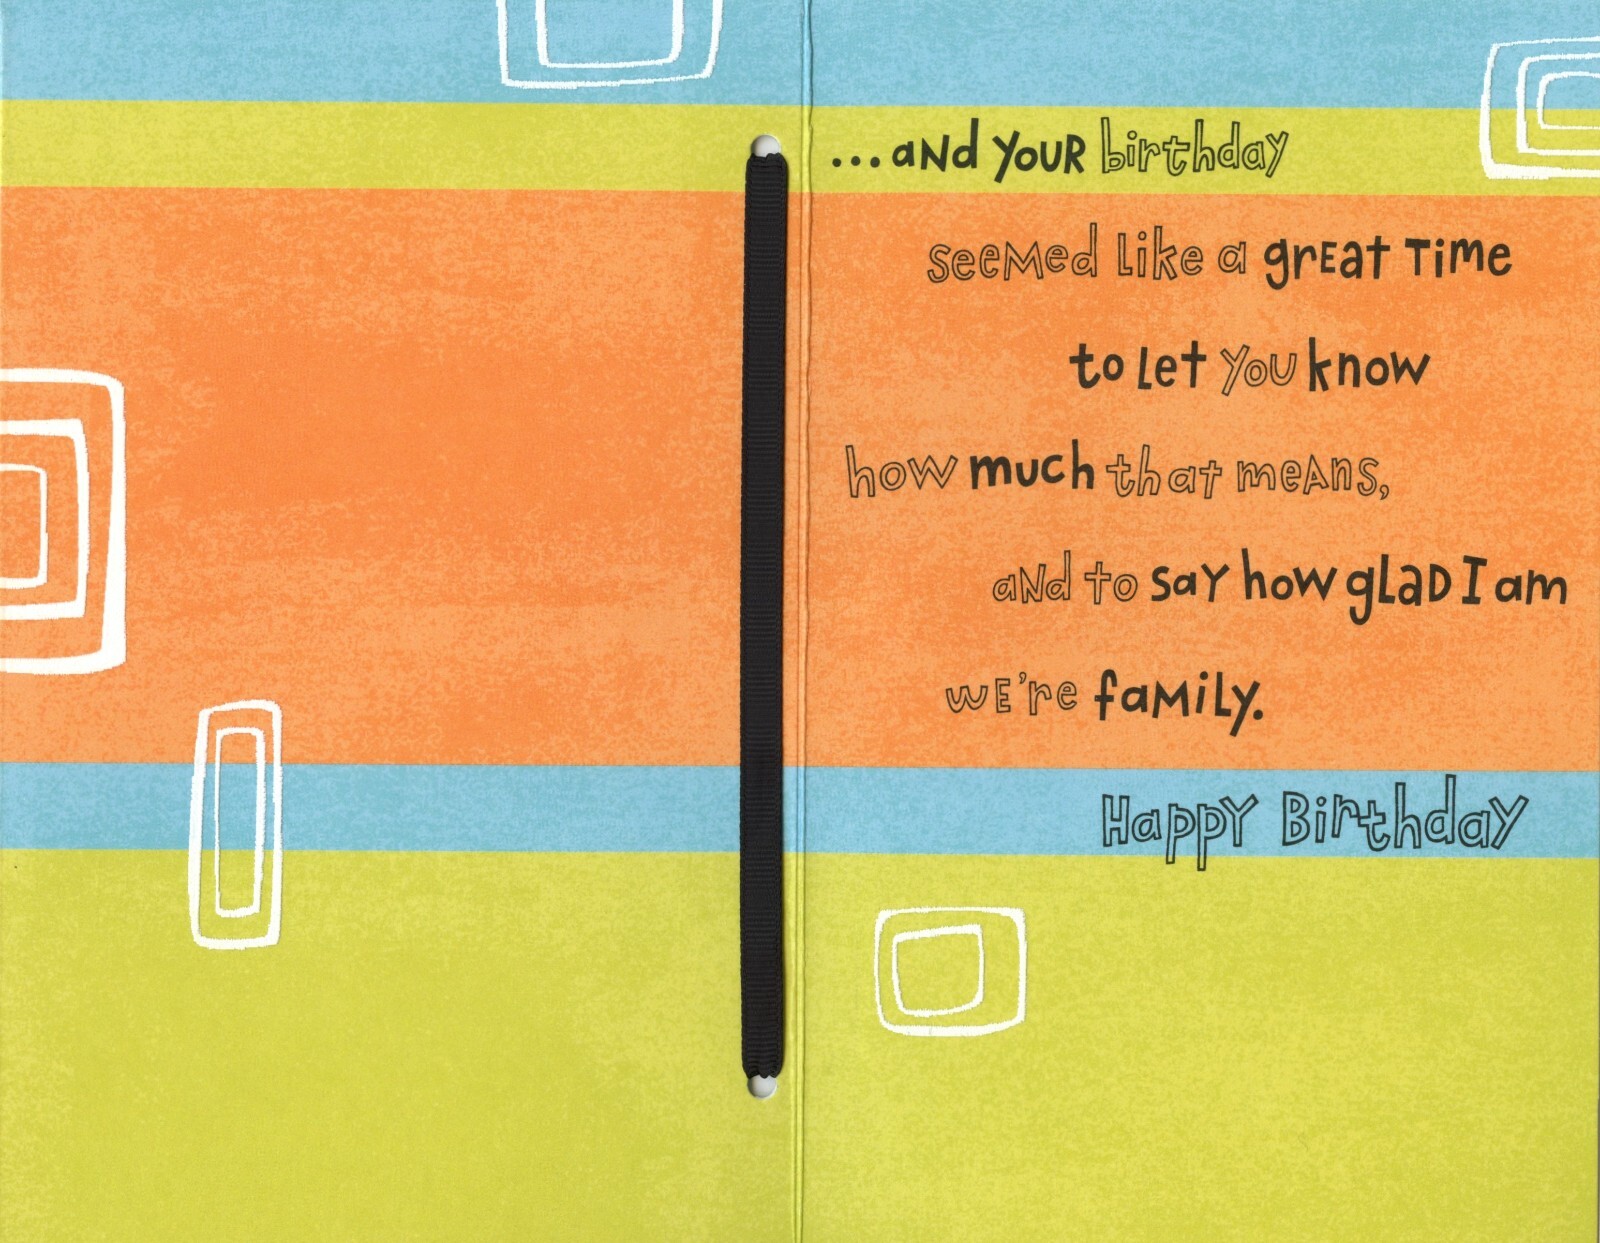 ...and your birthday
seemed like a great time
to let you know
how much that means,
and to say how glad I am
we're family.
Happy Birthday